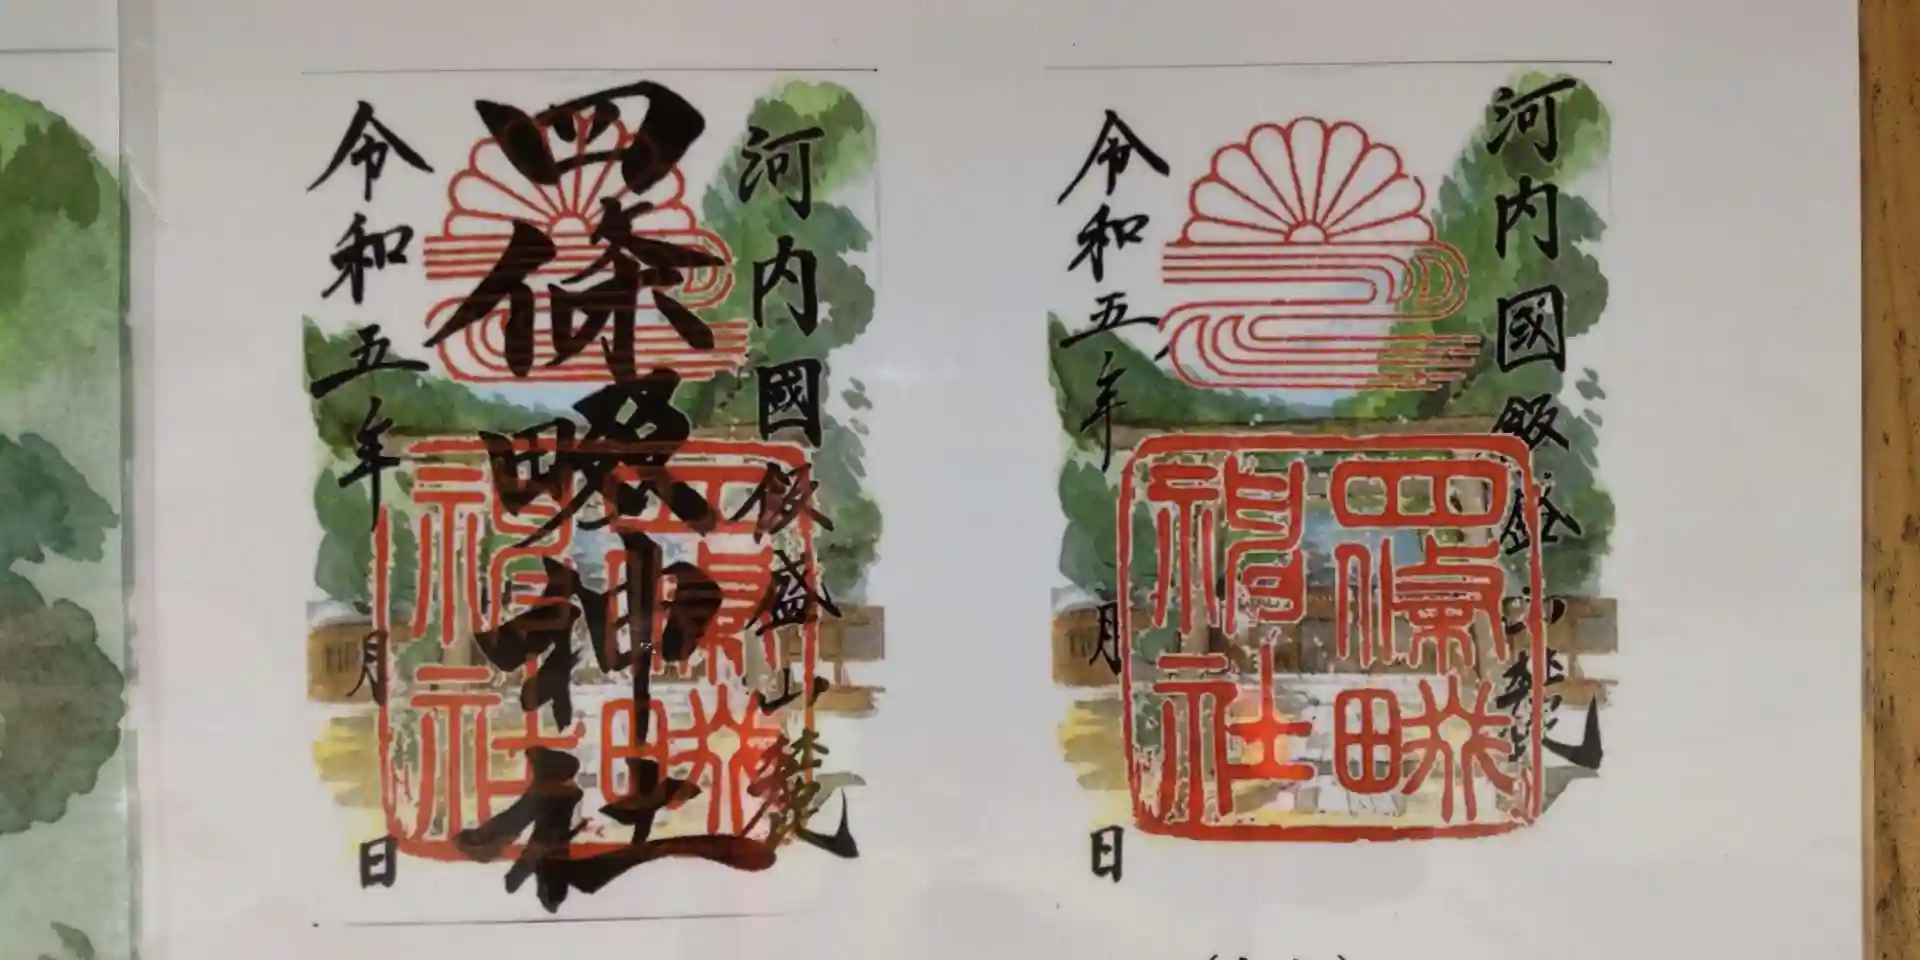 河内國飯盛山麓
四條畷神社
四條畷神社
令和五年 月 日
河内國飯盛山麓
四條畷神社
令和五年 月 日